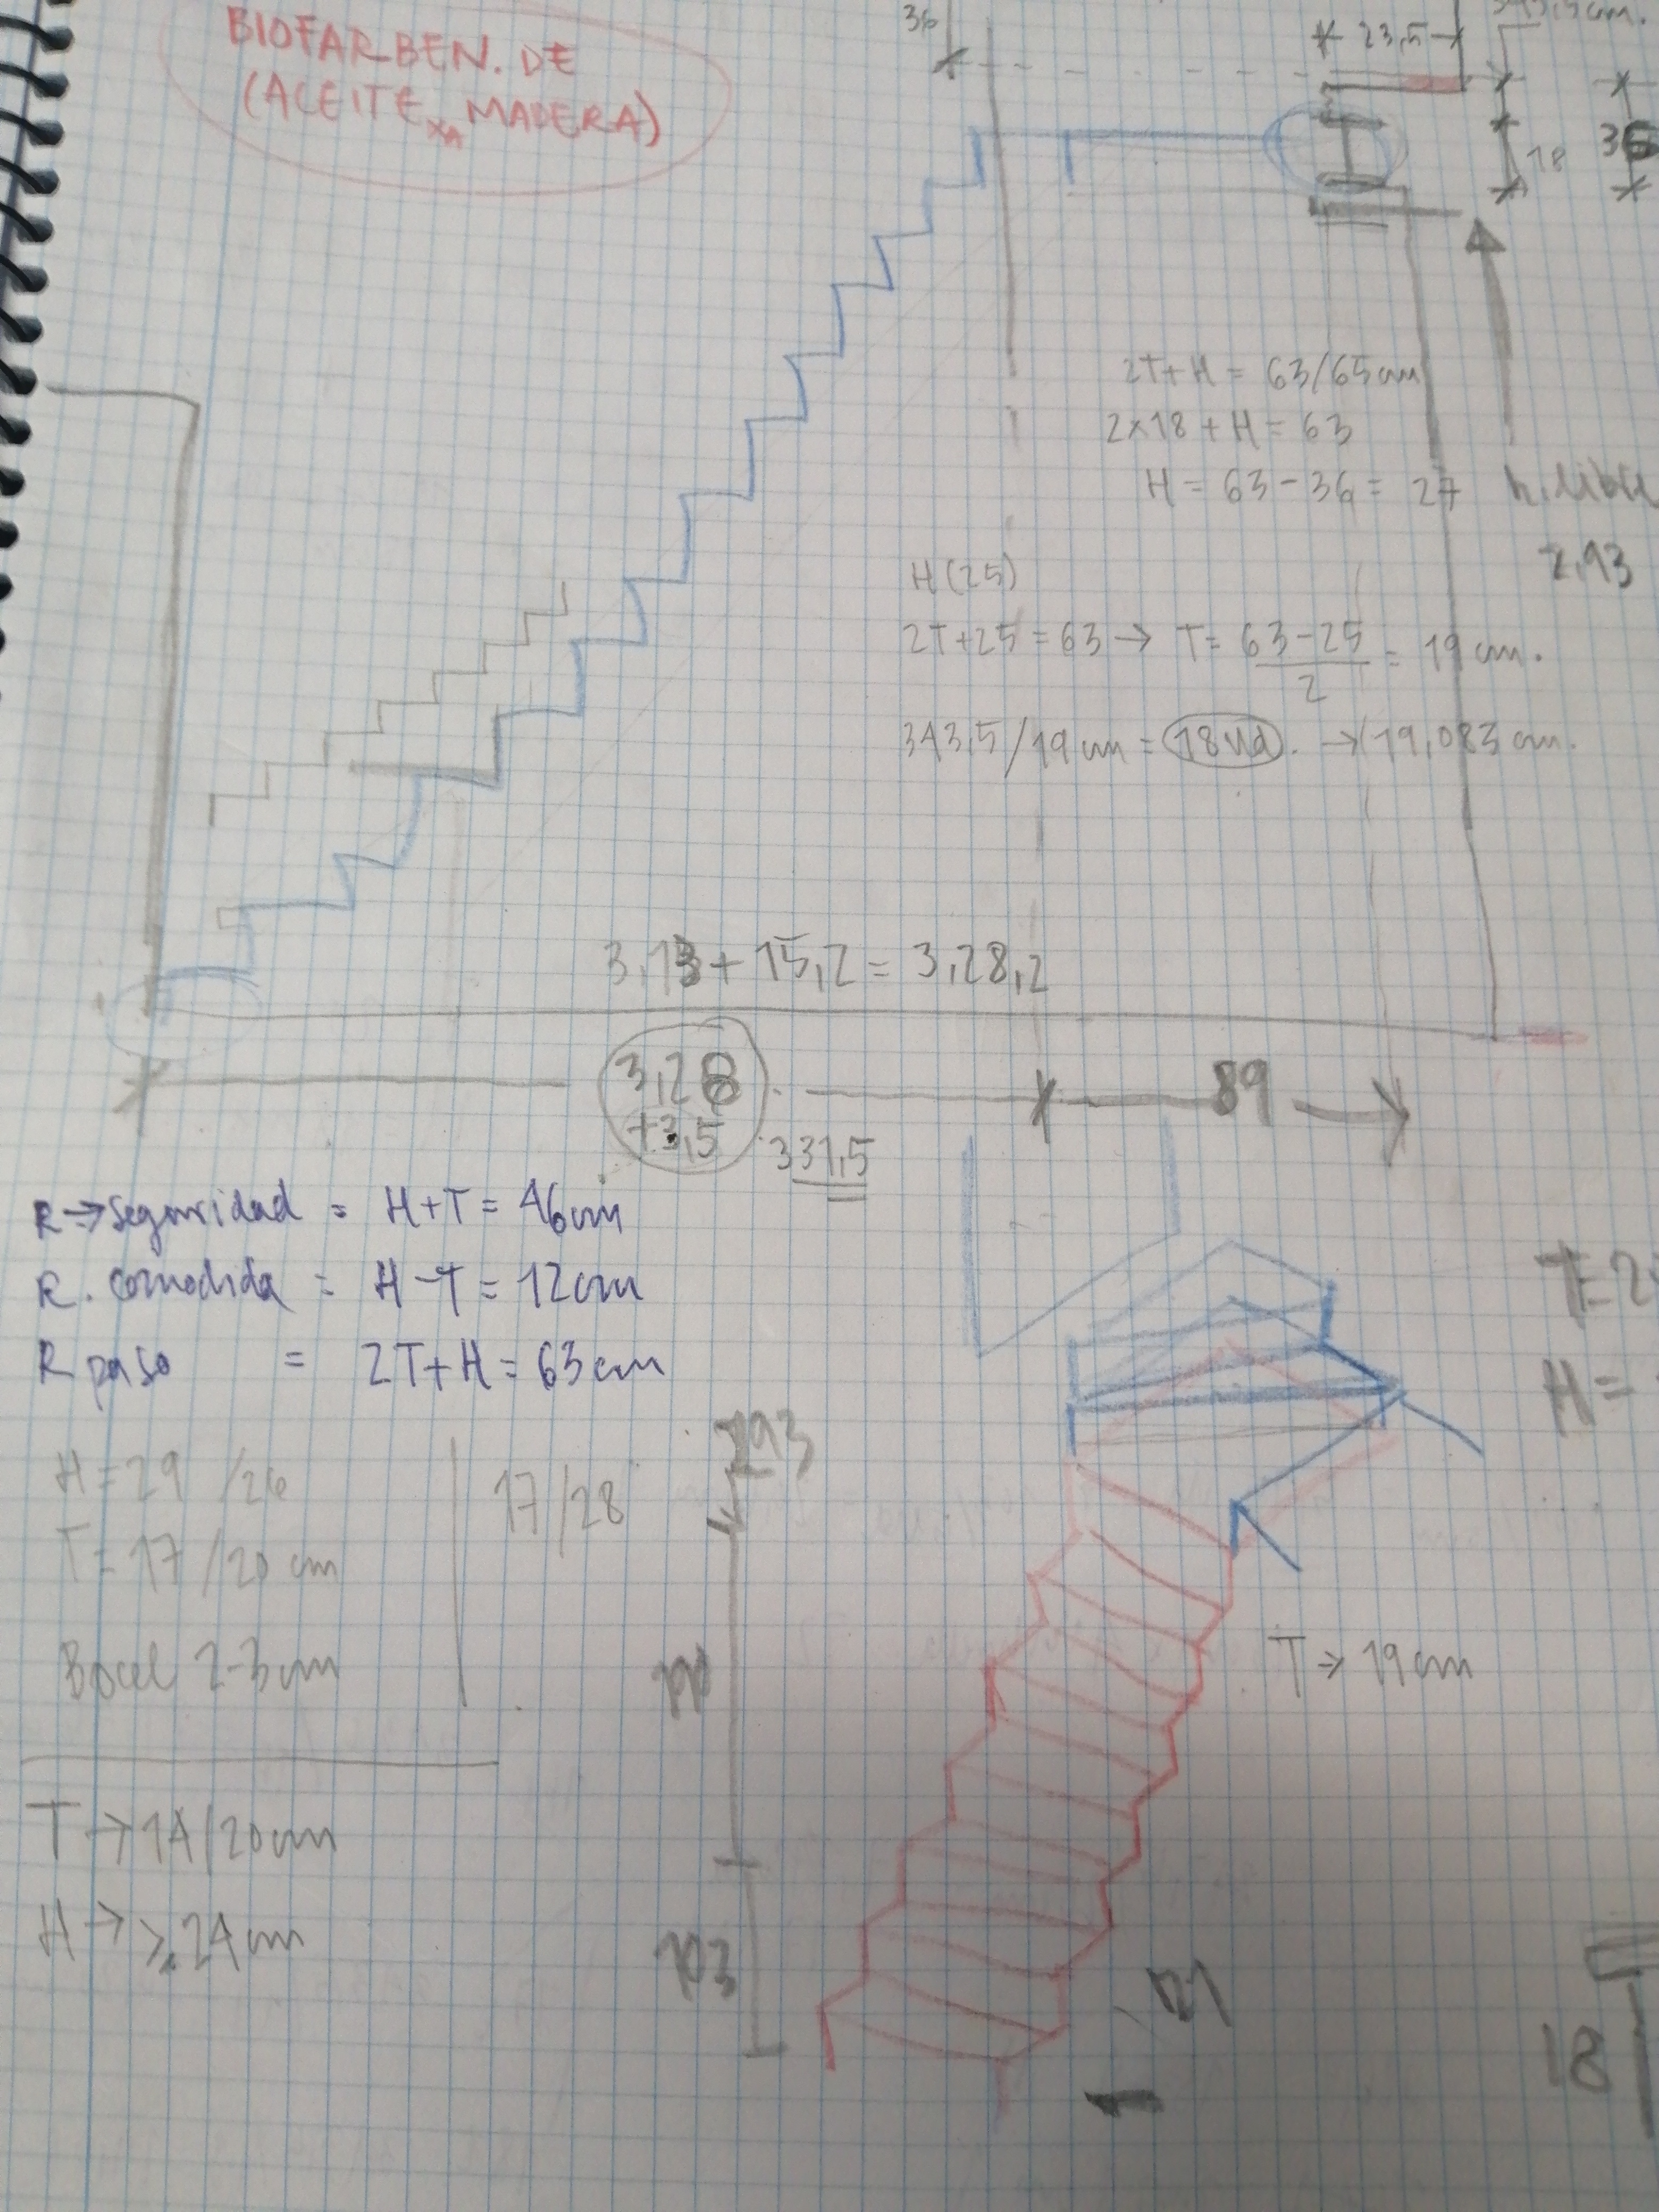 BIOFARBEN.DE
(ACEITE xa MADERA)
36
23,5
18
36
2T+H = 63/65cm
2×18+H = 63
H = 63-36 = 27
h. libre
2,93
H(25)
2T+25 = 63 → T = 63-25 / 2 = 19 cm.
343,5/19cm = 18 Ud. → (19,083 cm.
3,13 + 15,2 = 3,28,2
3,28
+3,5
331,5
89
R→seguridad = H+T = 46cm
R. comodida = H-T = 12cm
R paso = 2T+H = 63cm
H = 29 /26
T = 17 /20 cm
17/28
Bocel 2-3cm
T → 14/20cm
H → ≥ 24cm
193
190
103
T → 19cm
121
H =
18